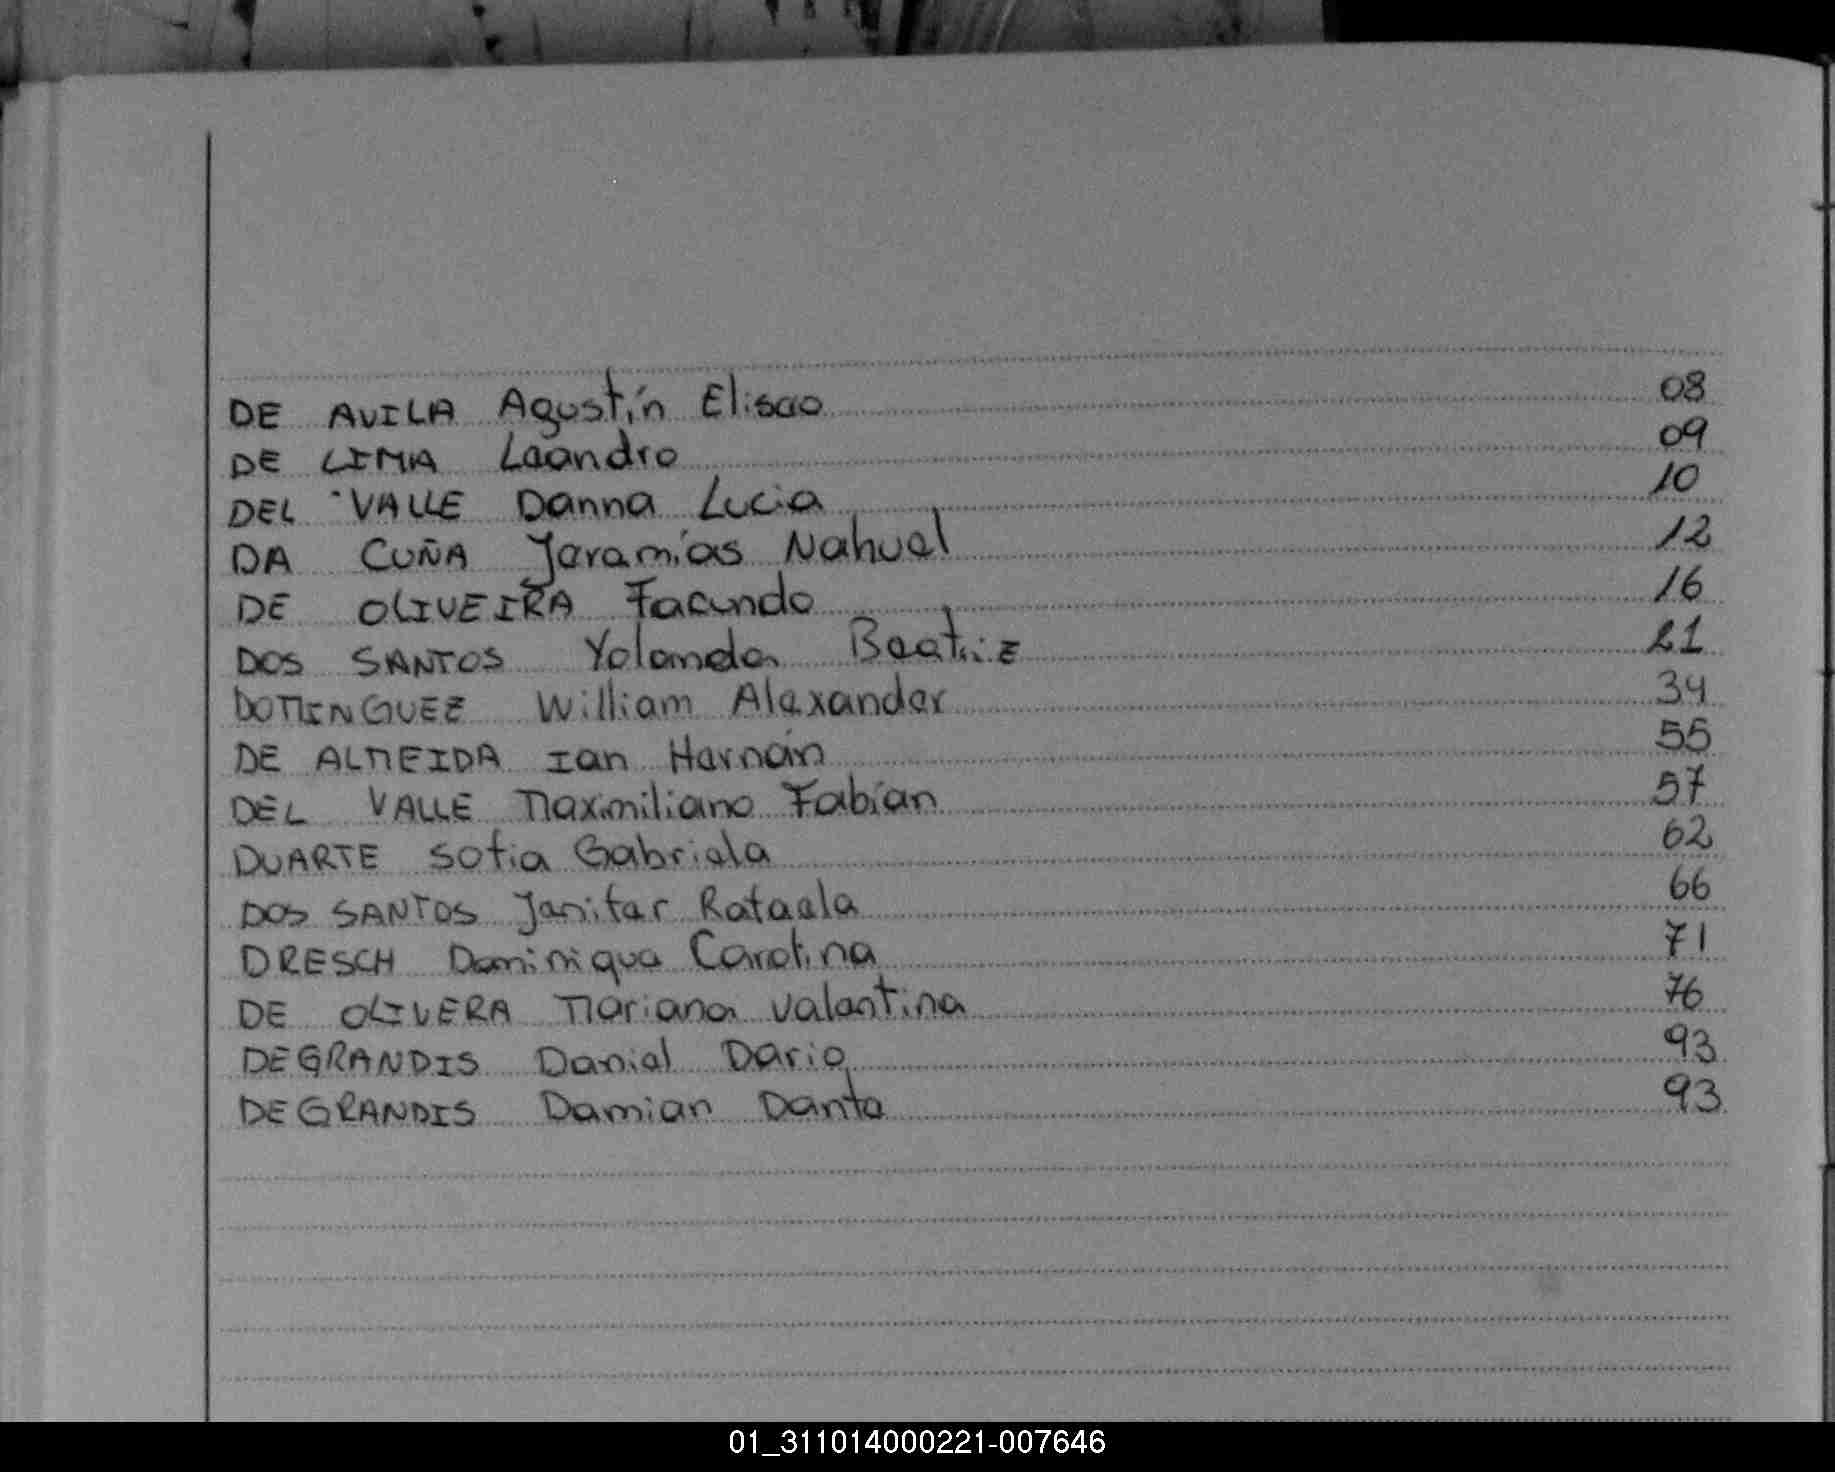 DE AVILA Agustín Eliseo 08
DE LIMA Leandro 09
DEL VALLE Danna Lucia 10
DA CUÑA Jeremías Nahuel 12
DE OLIVEIRA Facundo 16
DOS SANTOS Yolanda Beatriz 21
DOMINGUEZ William Alexander 34
DE ALMEIDA Ian Hernán 55
DEL VALLE Maximiliano Fabían 57
DUARTE Sofia Gabriela 62
DOS SANTOS Jenifer Rafaela 66
DRESCH Dominique Carolina 71
DE OLIVERA Mariana Valentina 76
DEGRANDIS Daniel Dario 93
DEGRANDIS Damian Dante 93
01_311014000221-007646